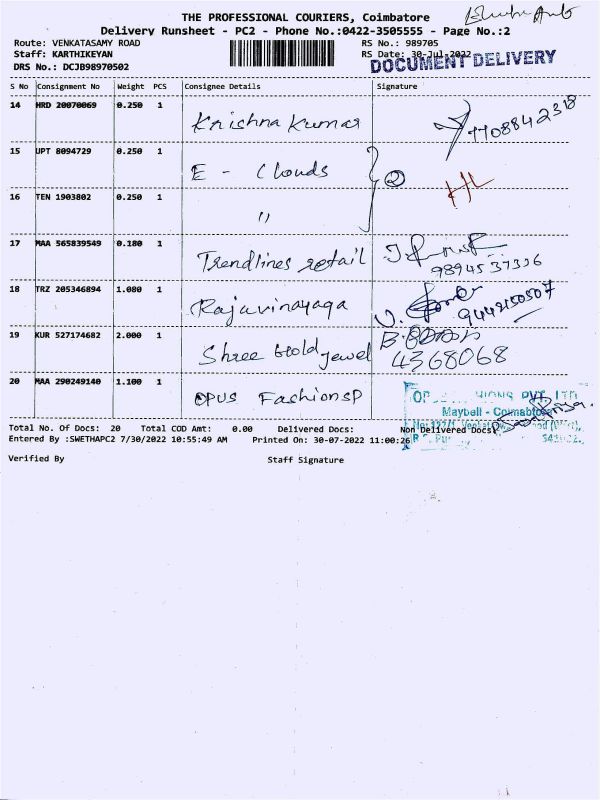 THE PROFESSIONAL COURIERS, Coimbatore
Delivery Runsheet - PC2 - Phone No.:0422-3505555 - Page No.:2
Route: VENKATASAMY ROAD RS No.: 989705
Staff: KARTHIKEYAN RS Date: 30-Jul-2022
DRS No.: DCJB98970502 DOCUMENT DELIVERY
S No Consignment No Weight PCS Consignee Details Signature
14 HRD 20070069 0.250 1 Krishna Kumar 7708842318
15 UPT 8094729 0.250 1 E - Clouds
16 TEN 1903802 0.250 1 "
2
17 MAA 565839549 0.180 1 Trendlines retail
9894537336
18 TRZ 205346894 1.080 1 Rajavinayaga
9442150507
19 KUR 527174682 2.000 1 Shree Gold Jewel
4368068
20 MAA 290249140 1.100 1 OPUS FashionsP
PVT LTD
Maybell - Coimbatore
Total No. Of Docs: 20 Total COD Amt: 0.00 Delivered Docs: Non Delivered Docs:
Entered By :SWETHAPC2 7/30/2022 10:55:49 AM Printed On: 30-07-2022 11:00:26
Verified By Staff Signature